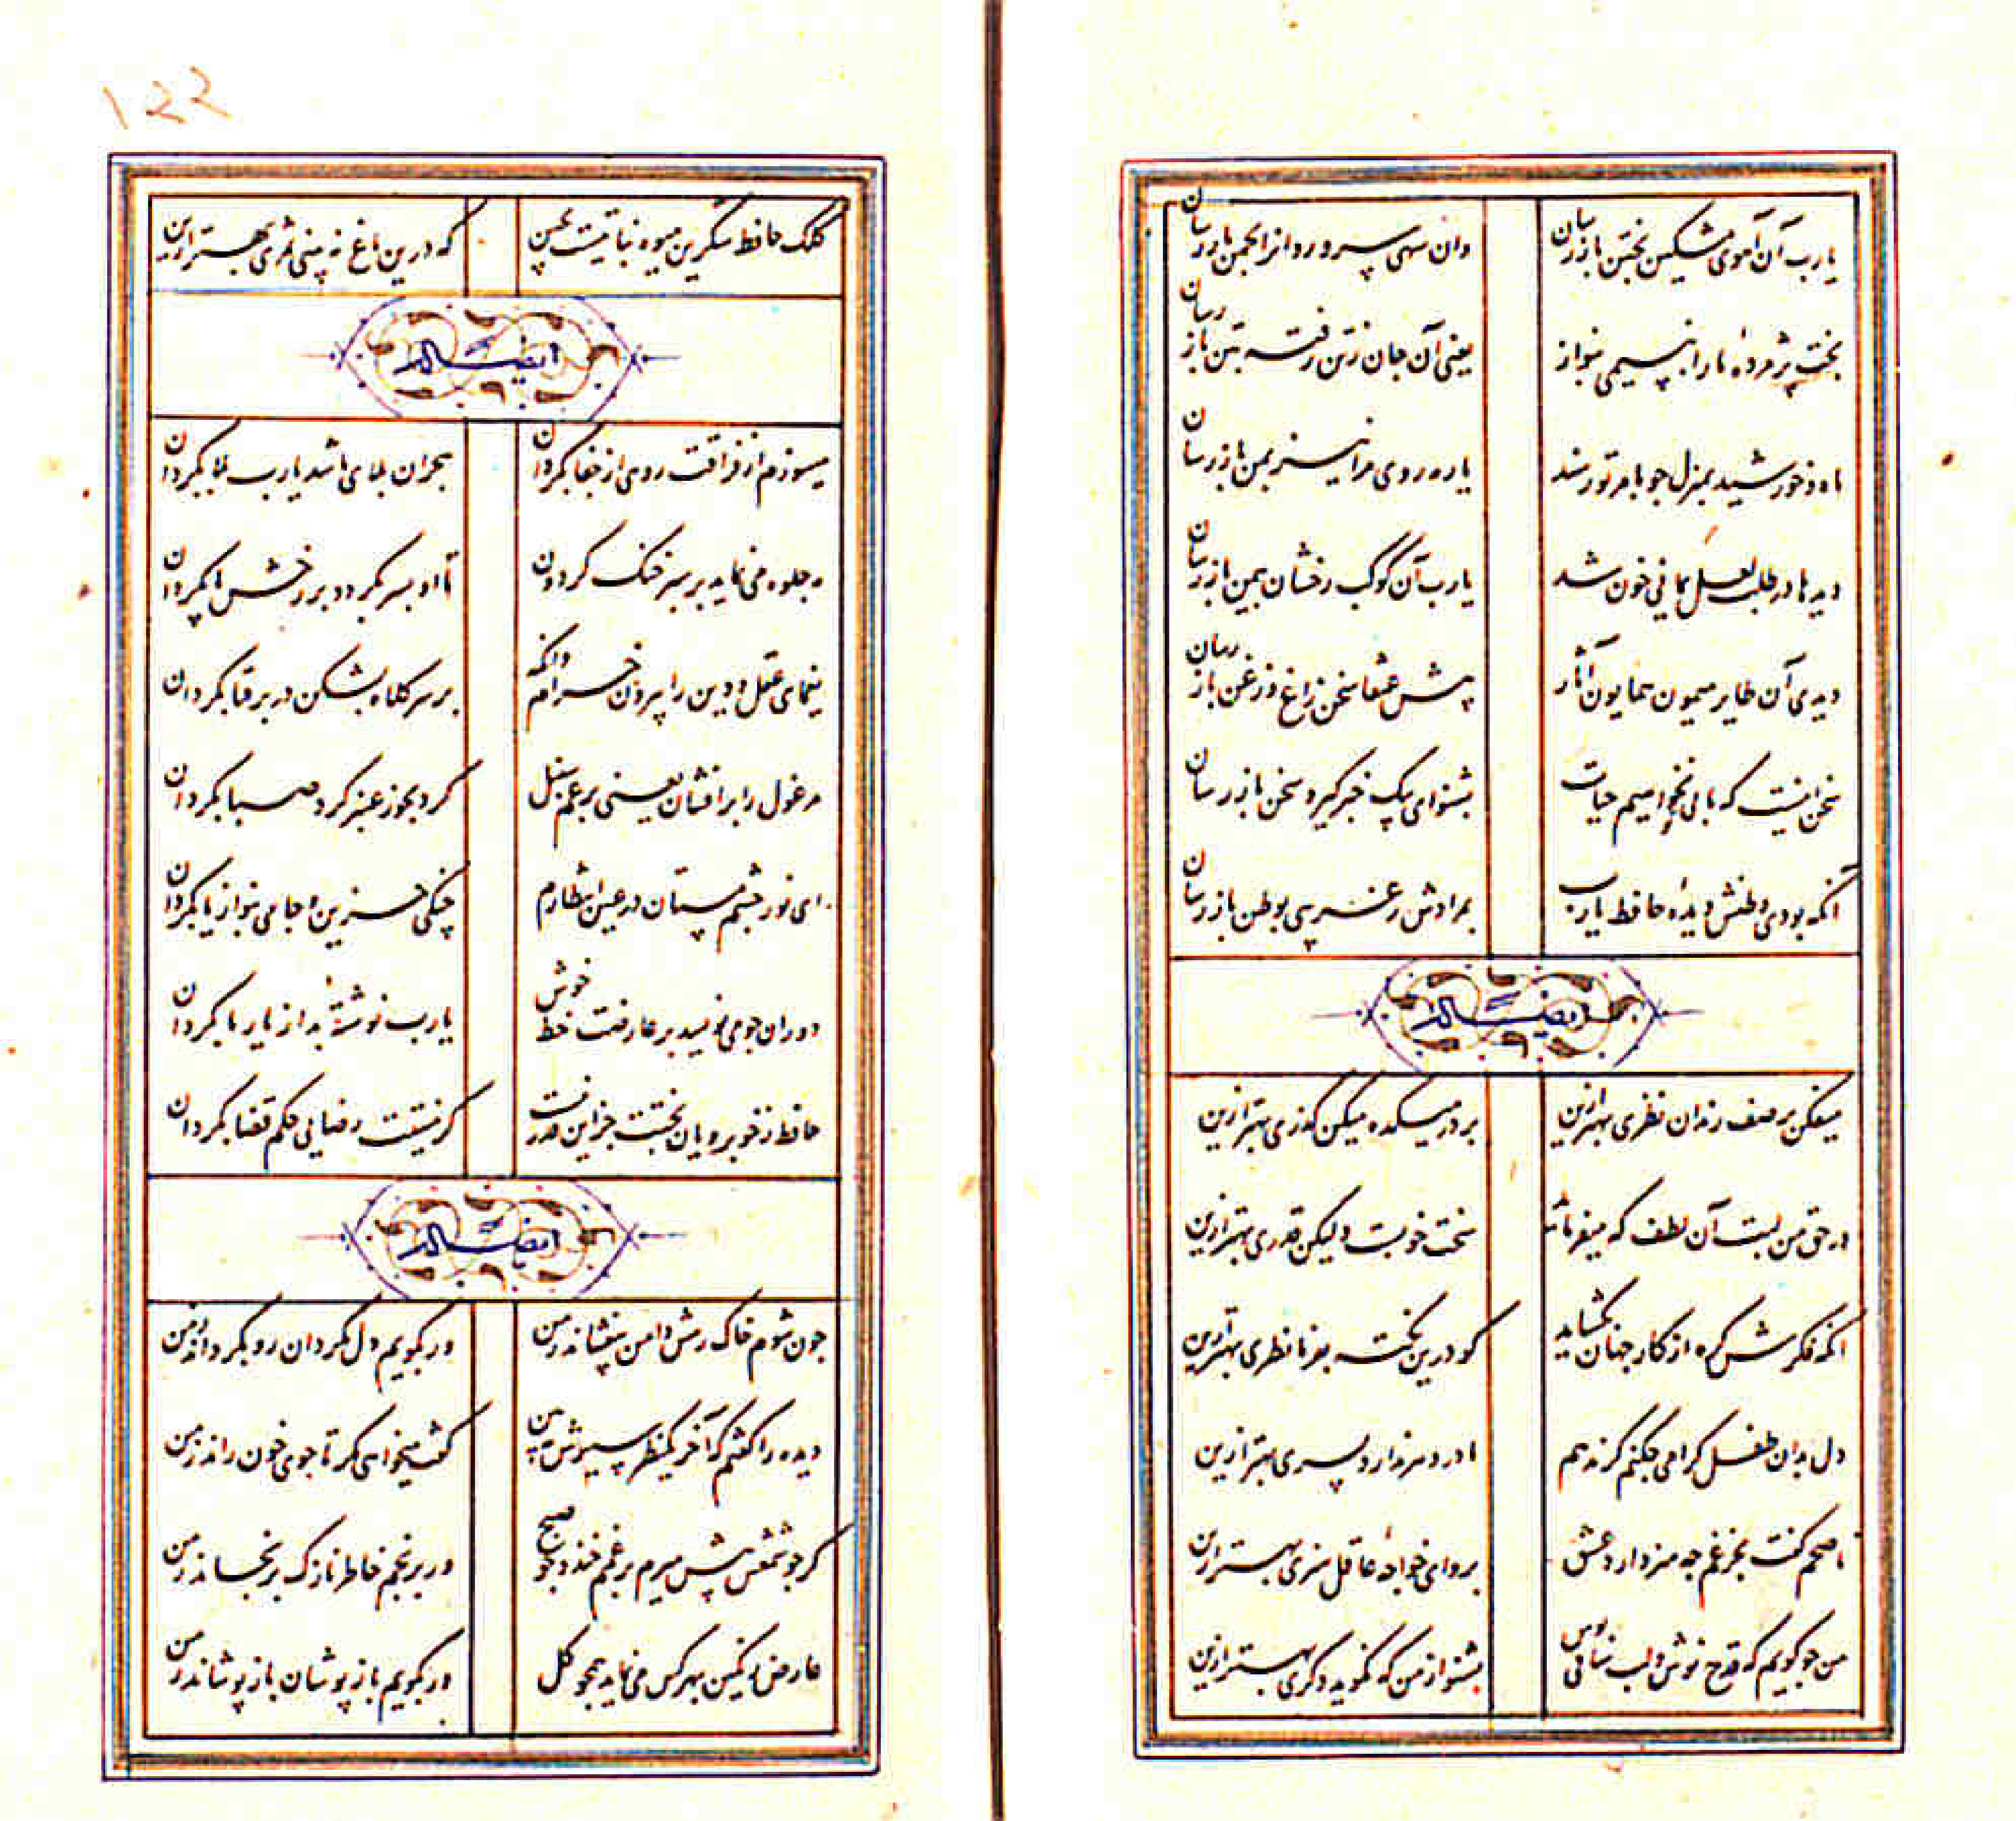 یارب آن آهوی مشکین بختن باز رسان
وان سهی سرو روانرا بچمن باز رسان
بخت پژمردهٔ ما را به نسیمی بنواز
یعنی آن جان ز تن رفته بتن باز رسان
ماه و خورشید بمنزل جو بامر تو رسند
یار مه روی مرا نیز بمن باز رسان
دیدها در طلب لعل یمانی خون شد
یارب آن کوکب رخشان بیمن باز رسان
دیدی آن طایر میمون همایون آثار
پیش عنقا سخن زاغ و زغن باز رسان
سخن اینست که ما بی تو نخواهیم حیات
بشنو ای پیک خبر کیر و سخن باز رسان
آنکه بودی وطنش دیدهٔ حافظ یارب
بمرادش ز غریبی بوطن باز رسان
ایضاً له
میفکن بر صف رندان نظری بهتر ازین
بر در میکده میکن کذری بهتر ازین
در حق من لبت آن لطف که میفرماید
سخت خوبست ولیکن قدری بهتر ازین
آنکه فکرش کره از کار جهان بکشاید
کو درین نکته بفرما نظری بهتر ازین
دل بدان طفل کرامی جکنم کر ندهم
مادر دهر ندارد پسری بهتر ازین
ناصحم کفت بجز غم جه هنر دارد عشق
برو ای خواجهٔ عاقل هنری بهتر ازین
من جو کویم که قدح نوش و لب ساقی بوس
بشنو از من که نکوید دکری بهتر ازین
۱۲۲
کلک حافظ شکرین میوه نباتیست بچین
که درین باغ نه بینی ثمری بهتر ازین
ایضاً له
میسوزم از فراقت روی از جفا بکردان
هجران بلای ما شد یارب بلا بکردان
مه جلوه می نماید بر سبز خنک کردون
تا او بسر بکردد بر رخش پا بکردان
یغمای عقل و دین را بیرون خرام وانکه
بر سر کلاه بشکن در بر قبا بکردان
مرغول را برافشان یعنی برغم سنبل
کرد بخور عنبر کرد صبا بکردان
ای نور چشم مستان در عین انتظارم
چنکی حزین و جامی بنواز یا بکردان
دوران جوی نویسد بر عارضت خط خوش
یارب نوشتهٔ بد از یار ما بکردان
حافظ ز خوبرویان بختت جز این قدر نیست
کر نیستت رضایی حکم قضا بکردان
ایضاً له
جون شوم خاک رهش دامن بیفشاند ز من
ور بکویم دل بکردان رو بکرداند ز من
دیده را کفتم کز آخر یکنظر سیرش ببین
کفت میخواهی مکر تا جوی خون راند ز من
کر جو شمعش پیش میرم بر غمم خندد جو صبح
ور برنجم خاطر نازک برنجاند ز من
عارض رنکین بهر کس می نماید همجو کل
ور بکویم باز پوشان باز پوشاند ز من